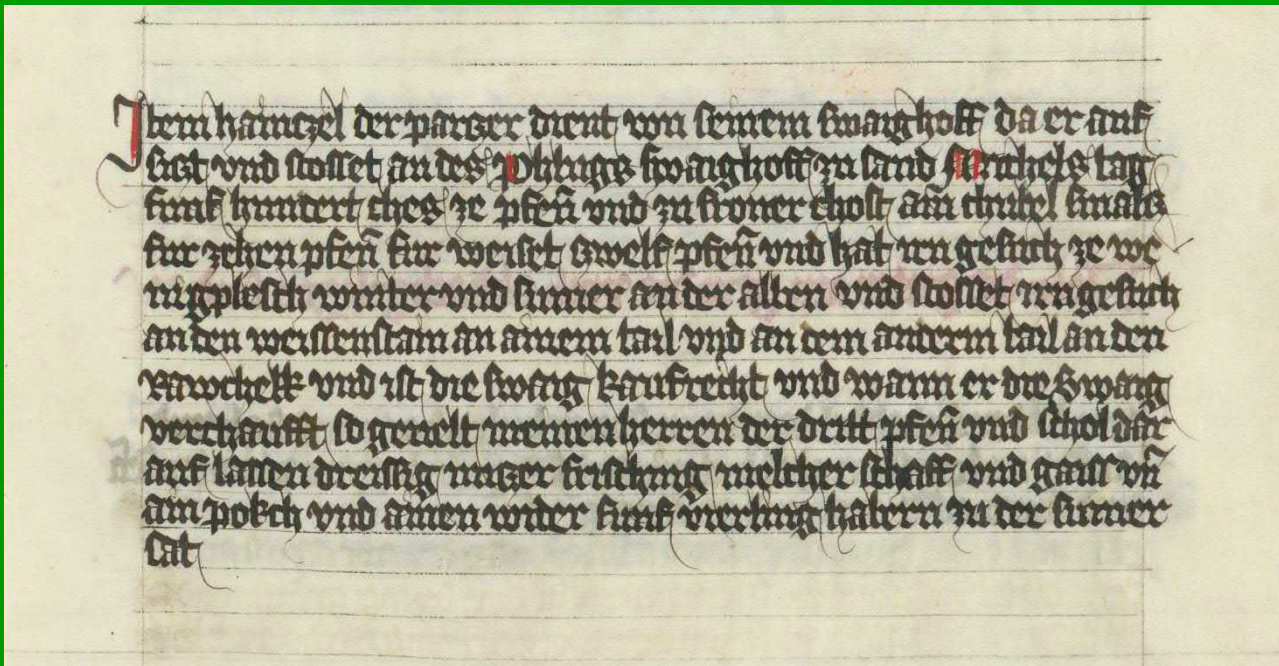 Item haintzel der parczer dient von seinem swaighoff da er auf
siczt vnd stosset an des Phlugs swaighoff zu sand Michels tag
funf hundert ches ze pfen̄ vnd zu froner chost ain chubel smalcz
fur zehen pfen̄ fur weiset zwelf pfen̄ vnd hat irn gesuch ze we
nigplesch winter vnd sumer an der alben vnd stosset irn gesuch
an den weissenstain an ainem tail vnd an dem anderm tail an den
Rawchekk vnd ist die swaig kaufrecht vnd wann er die Swaig
verchaufft so geuelt meinen herren der dritt pfen̄ vnd schol dar
auf lassen dreissig nuczer frisching melcher schaff vnd gaiss vn̄
ain pokch vnd ainen wider funf vierling habern zu der sumer
sat